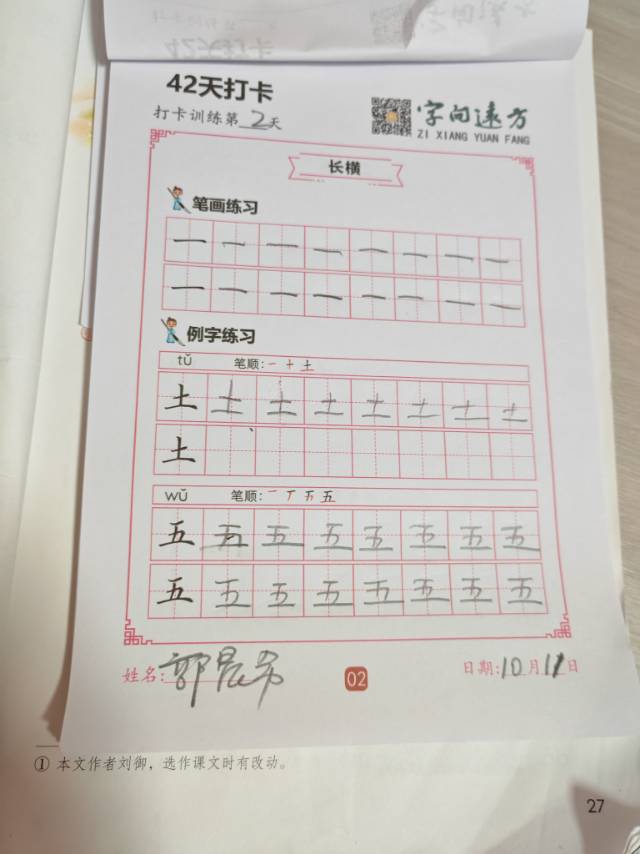 42天打卡
打卡训练第2天
字向远方
ZI XIANG YUAN FANG
长横
笔画练习
一 一 一 一 一 一 一 一
一 一 一 一 一 一 一 一
例字练习
tǔ 笔顺: 一 十 土
土 土 土 土 土 土 土 土
土
wǔ 笔顺: 一 丆 五 五
五 五 五 五 五 五 五 五
五 五 五 五 五 五 五 五
姓名: 郭晨希
02
日期: 10月11日
① 本文作者刘御，选作课文时有改动。
27